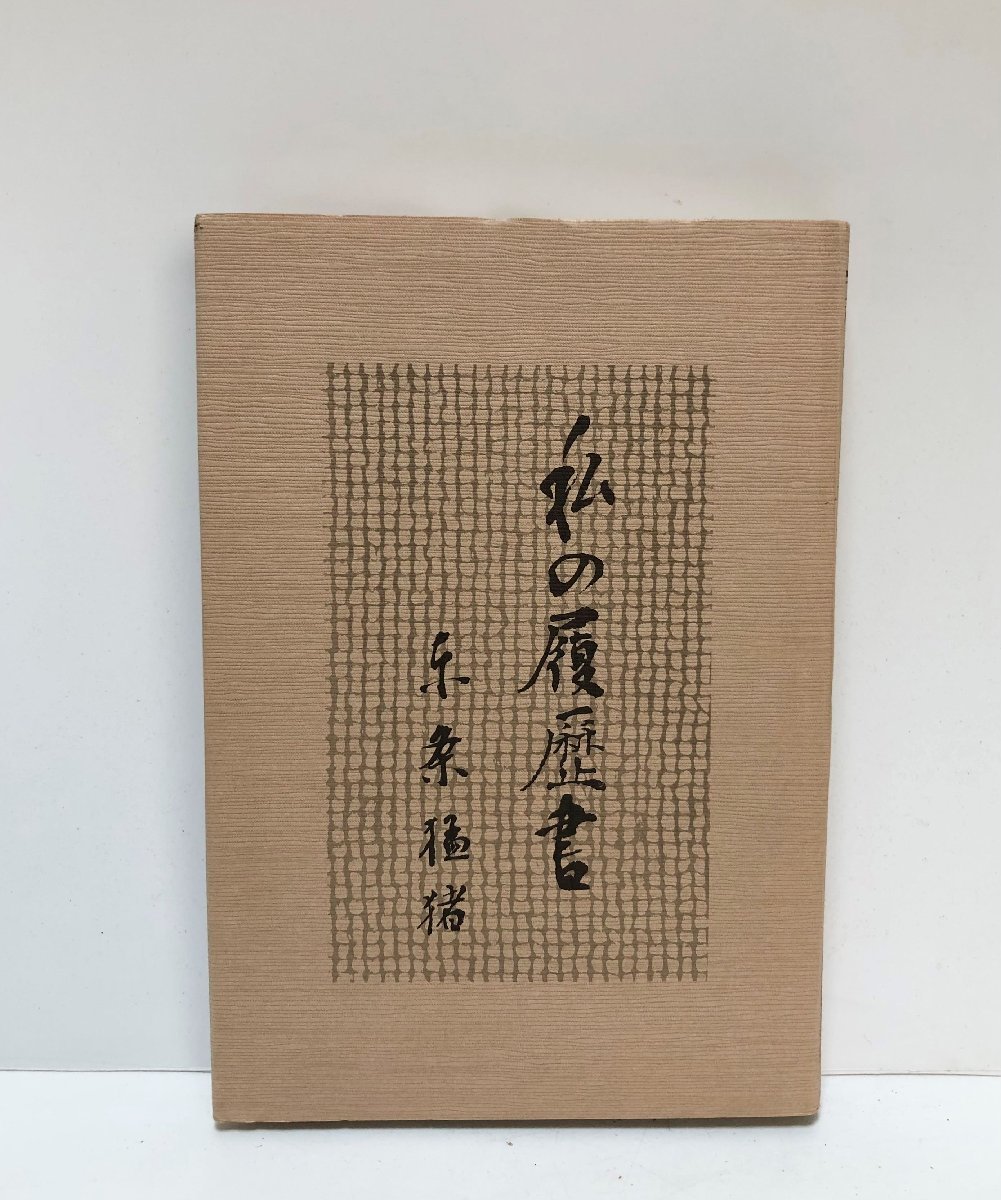 私の履歴書
東条猛猪